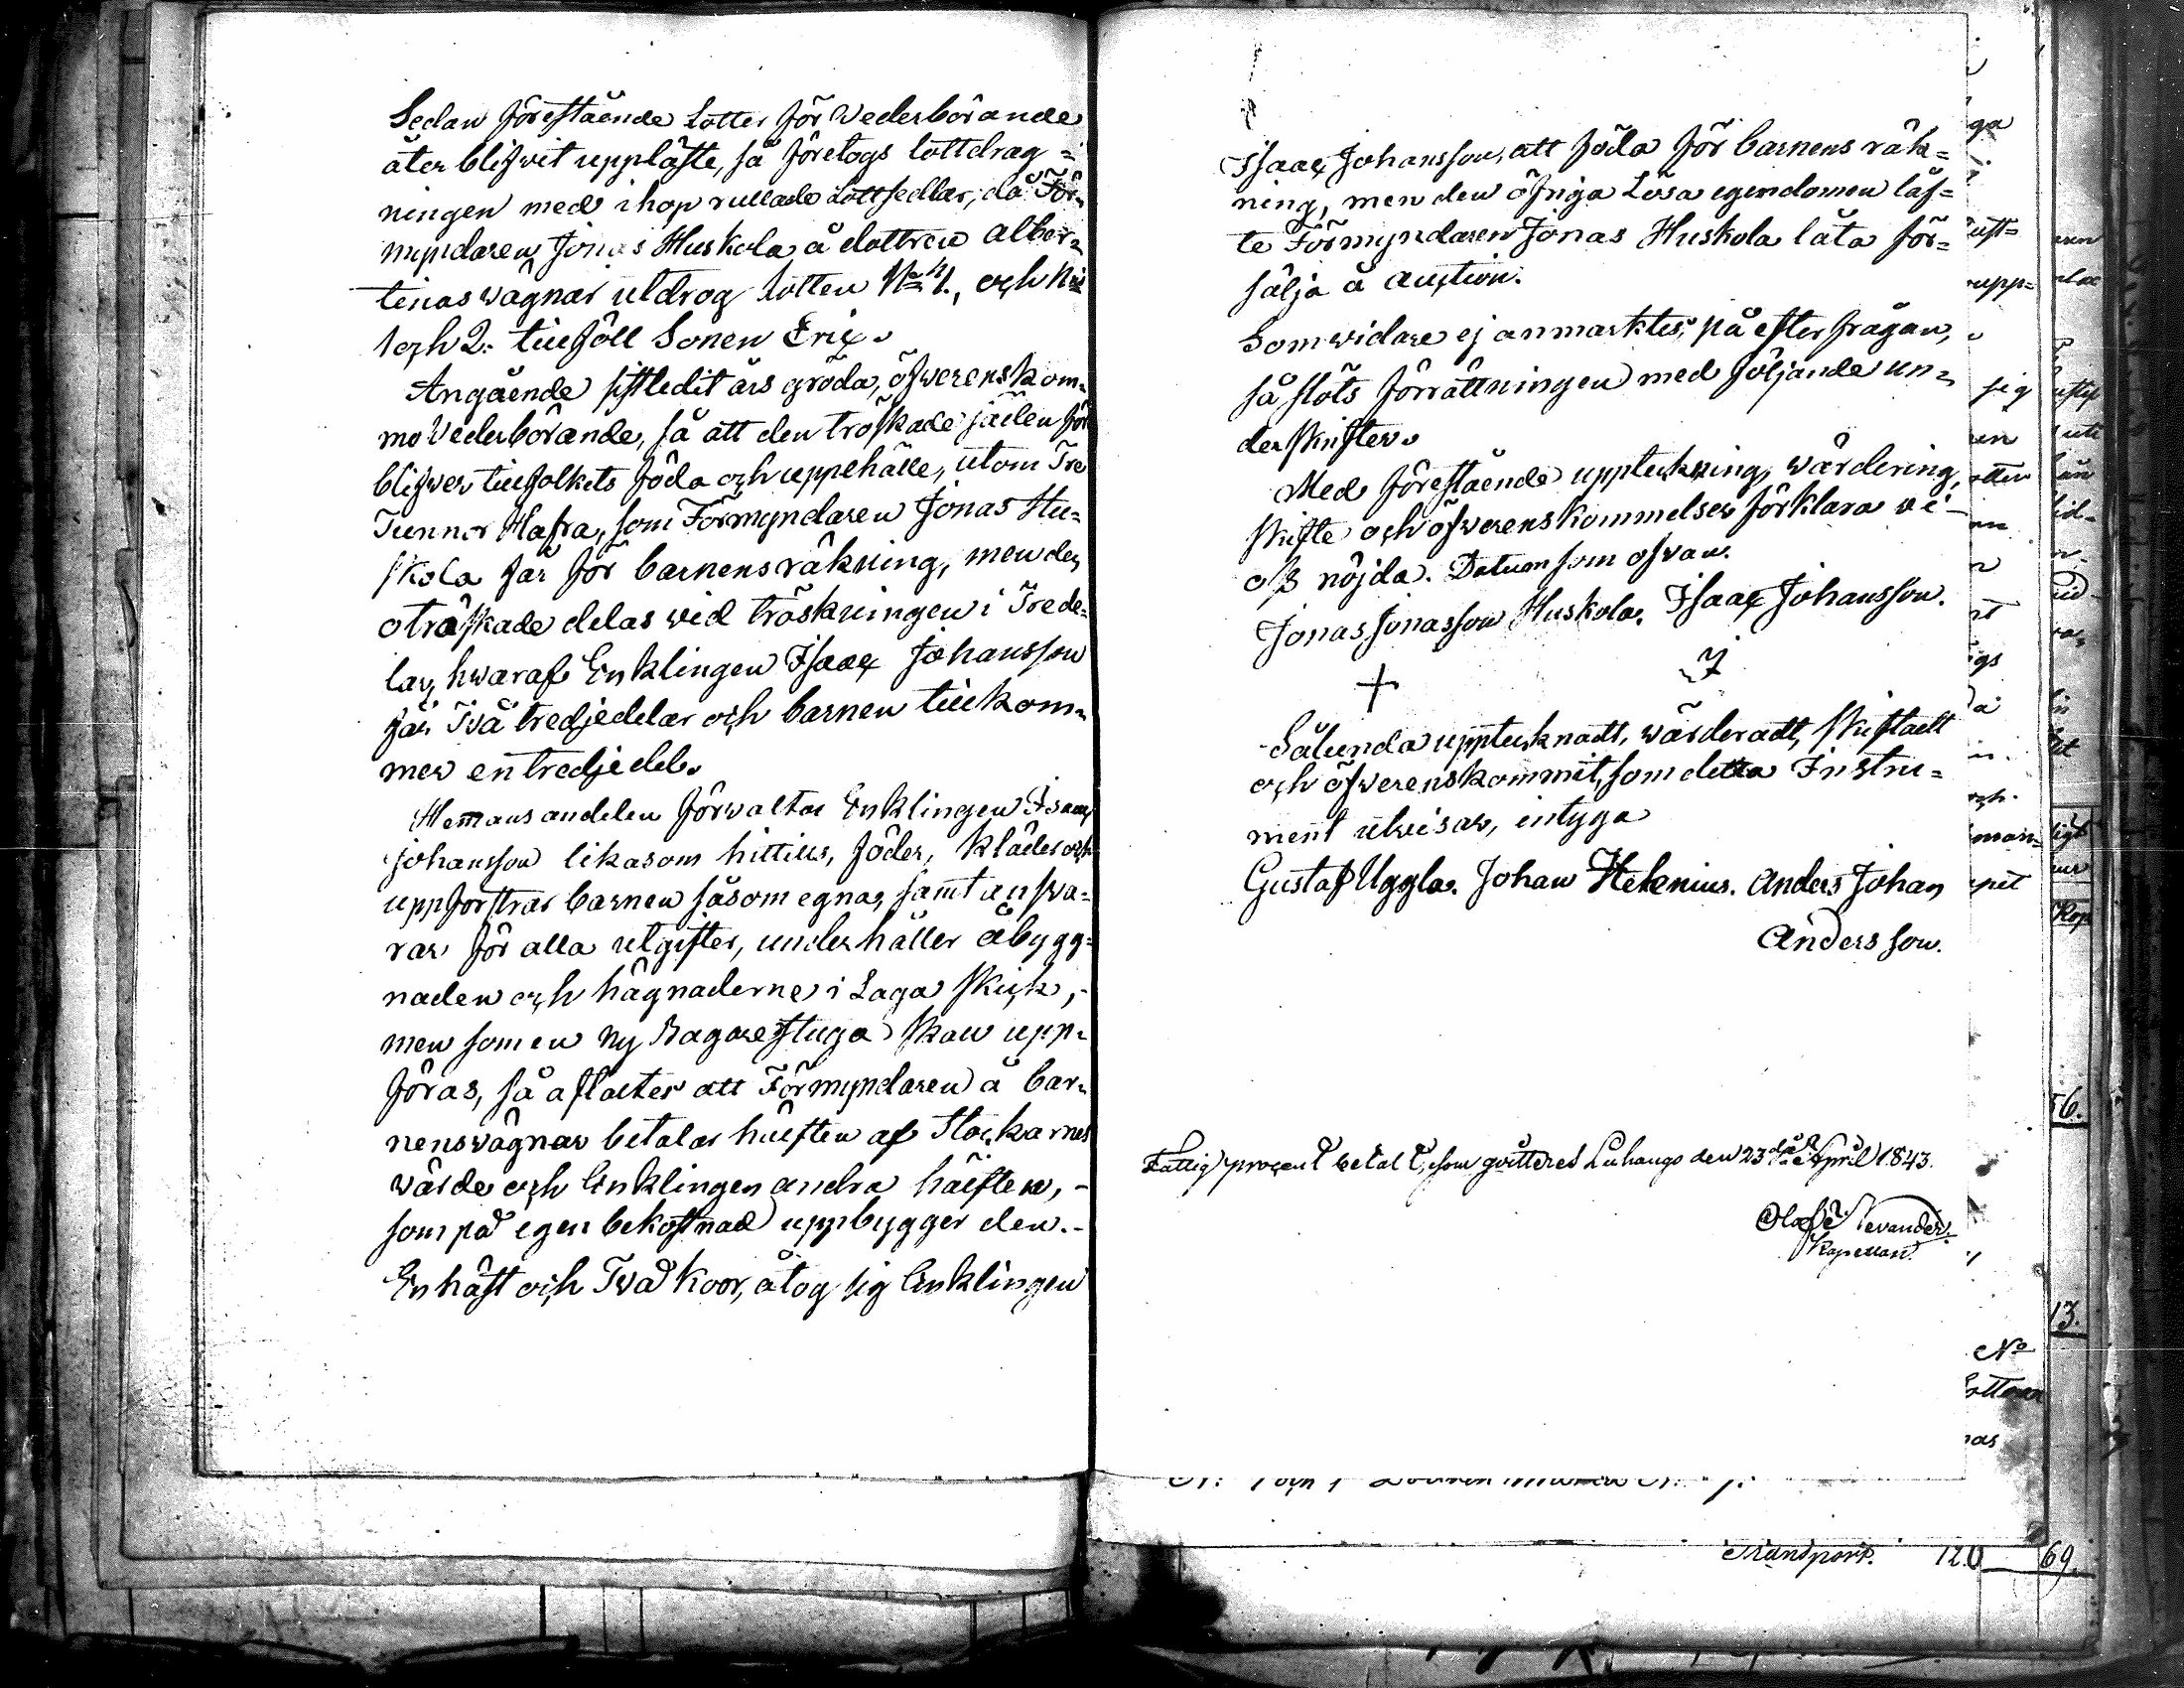 Sedan förestående Lotter för Vederbörande
åter blifwit uppläste, så företogs lottdrag=
ningen med ihop rullade Lottsedlar, då För=
myndaren Jonas Huskola å dottren Alber=
tinas wägnar utdrog Lotten No 1., och No
1 och 2. tillföll Sonen Eric.
Angående sistledit års gröda, öfwerenskom=
mo Vederbörande, så att den tröskade säden för
blifwer till folkets föda och uppehälle, utom Tre
Tunnor Hafra, som Förmyndaren Jonas Hu=
skola får för barnens räkning, men den
otröskade delas wid tröskningen i Trede=
lar, hwaraf Enklingen Isaac Johansson
får Två tredjedelar och barnen tillkom=
mer en tredjedel.
Hemans andelen förwaltar Enklingen Isaac
Johansson likasom hittills, föder, kläder och
uppfostrar barnen såsom egna, samt answa=
rar för alla utgifter, underhåller åbygg=
naden och hägnaderne i Laga skick,-
men som en ny Bagarestuga skall upp=
föras, så aftaltes att Förmyndaren å bar=
nens wägnar betalar hälften af Stockarnes
wärde och Enklingen andra hälften,-
som på egen bekostnad uppbygger den.-
En häst och Två Koor, åtog sig Enklingen
Isaac Johansson, att föda för barnens räk=
ning, men den öfriga Lösa egendomen läf=
te Förmyndaren Jonas Huskola låta för=
sälja å auction.
Som widare ej anmärktes, på efterfrågan,
så slöts förrättningen med följande un=
derskrifter.
Med förestående uppteckning, wärdering,
skifte och öfwerenskommelser förklara vi-
oss nöjda. Datum som ofwan.
Jonas Jonasson Huskola. Isaac Johansson.
+
Sålunda upptecknadt, wärderadt, skiftadt
och öfwerenskommit, som detta Instru=
ment utwisar, intyga
Gustaf Uggla. Johan Helenius. Anders Johan
Andersson.
Fattigprocent betalt, som qvitteres Luhango den 23 April 1843.
Olof Nevander.
Kapellan.
Transport. 120 69.